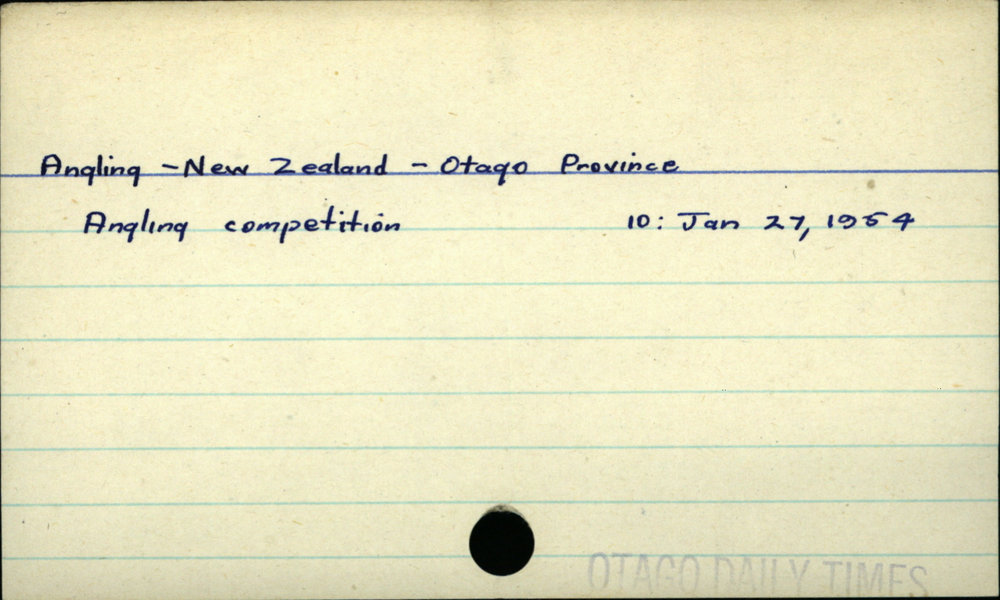 Angling - New Zealand - Otago Province
Angling competition 10: Jan 27, 1954
OTAGO DAILY TIMES